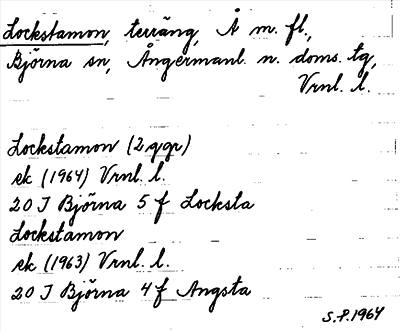 Lockstamon, terräng, Å m. fl.,
Björna sn, Ångermanl. n. doms. tg,
Vrnl. l.
Lockstamon (2 ggr)
ek (1964) Vrnl. l.
20 J Björna 5 f Locksta
Lockstamon
ek (1963) Vrnl. l.
20 J Björna 4 f Angsta
S.P. 1964